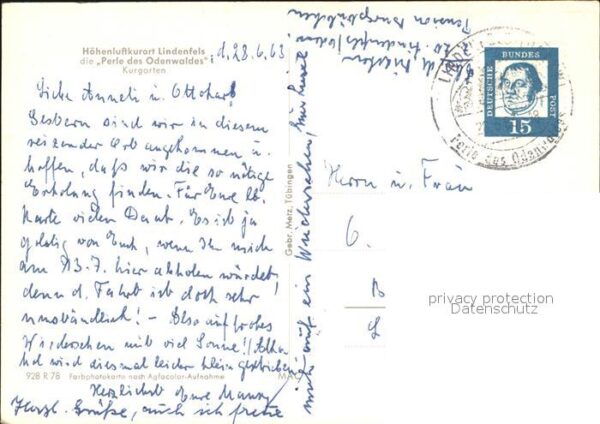 Höhenluftkurort Lindenfels
die „Perle des Odenwaldes"
Kurgarten
d. 28.6.63
Liebe Anneli u. Ottokar!
Gestern sind wir in diesem
reizenden Ort angekommen u.
hoffen, daß wir die so nötige
Erholung finden. Für Eure lb.
Karte vielen Dank. Es ist ja
goldig von Euch, wenn Ihr mich
am 13.7. hier abholen würdet,
denn d. Fahrt ist doch sehr
umständlich! – Also auf frohes
Wiedersehen mit viel Sonne!
wird diesmal leider klein geschrieben
Herzlichst Eure
Herzl. Grüße, auch ich freue
mich auf ein Wiedersehen, Eure
928 R 78 Farbphotokarte nach Agfacolor-Aufnahme
Gebr. Metz, Tübingen
Pension Burgschänke
Lindenfels
DEUTSCHE BUNDES POST
15
Perle des Odenwaldes
Herrn u. Frau
6.
privacy protection
Datenschutz